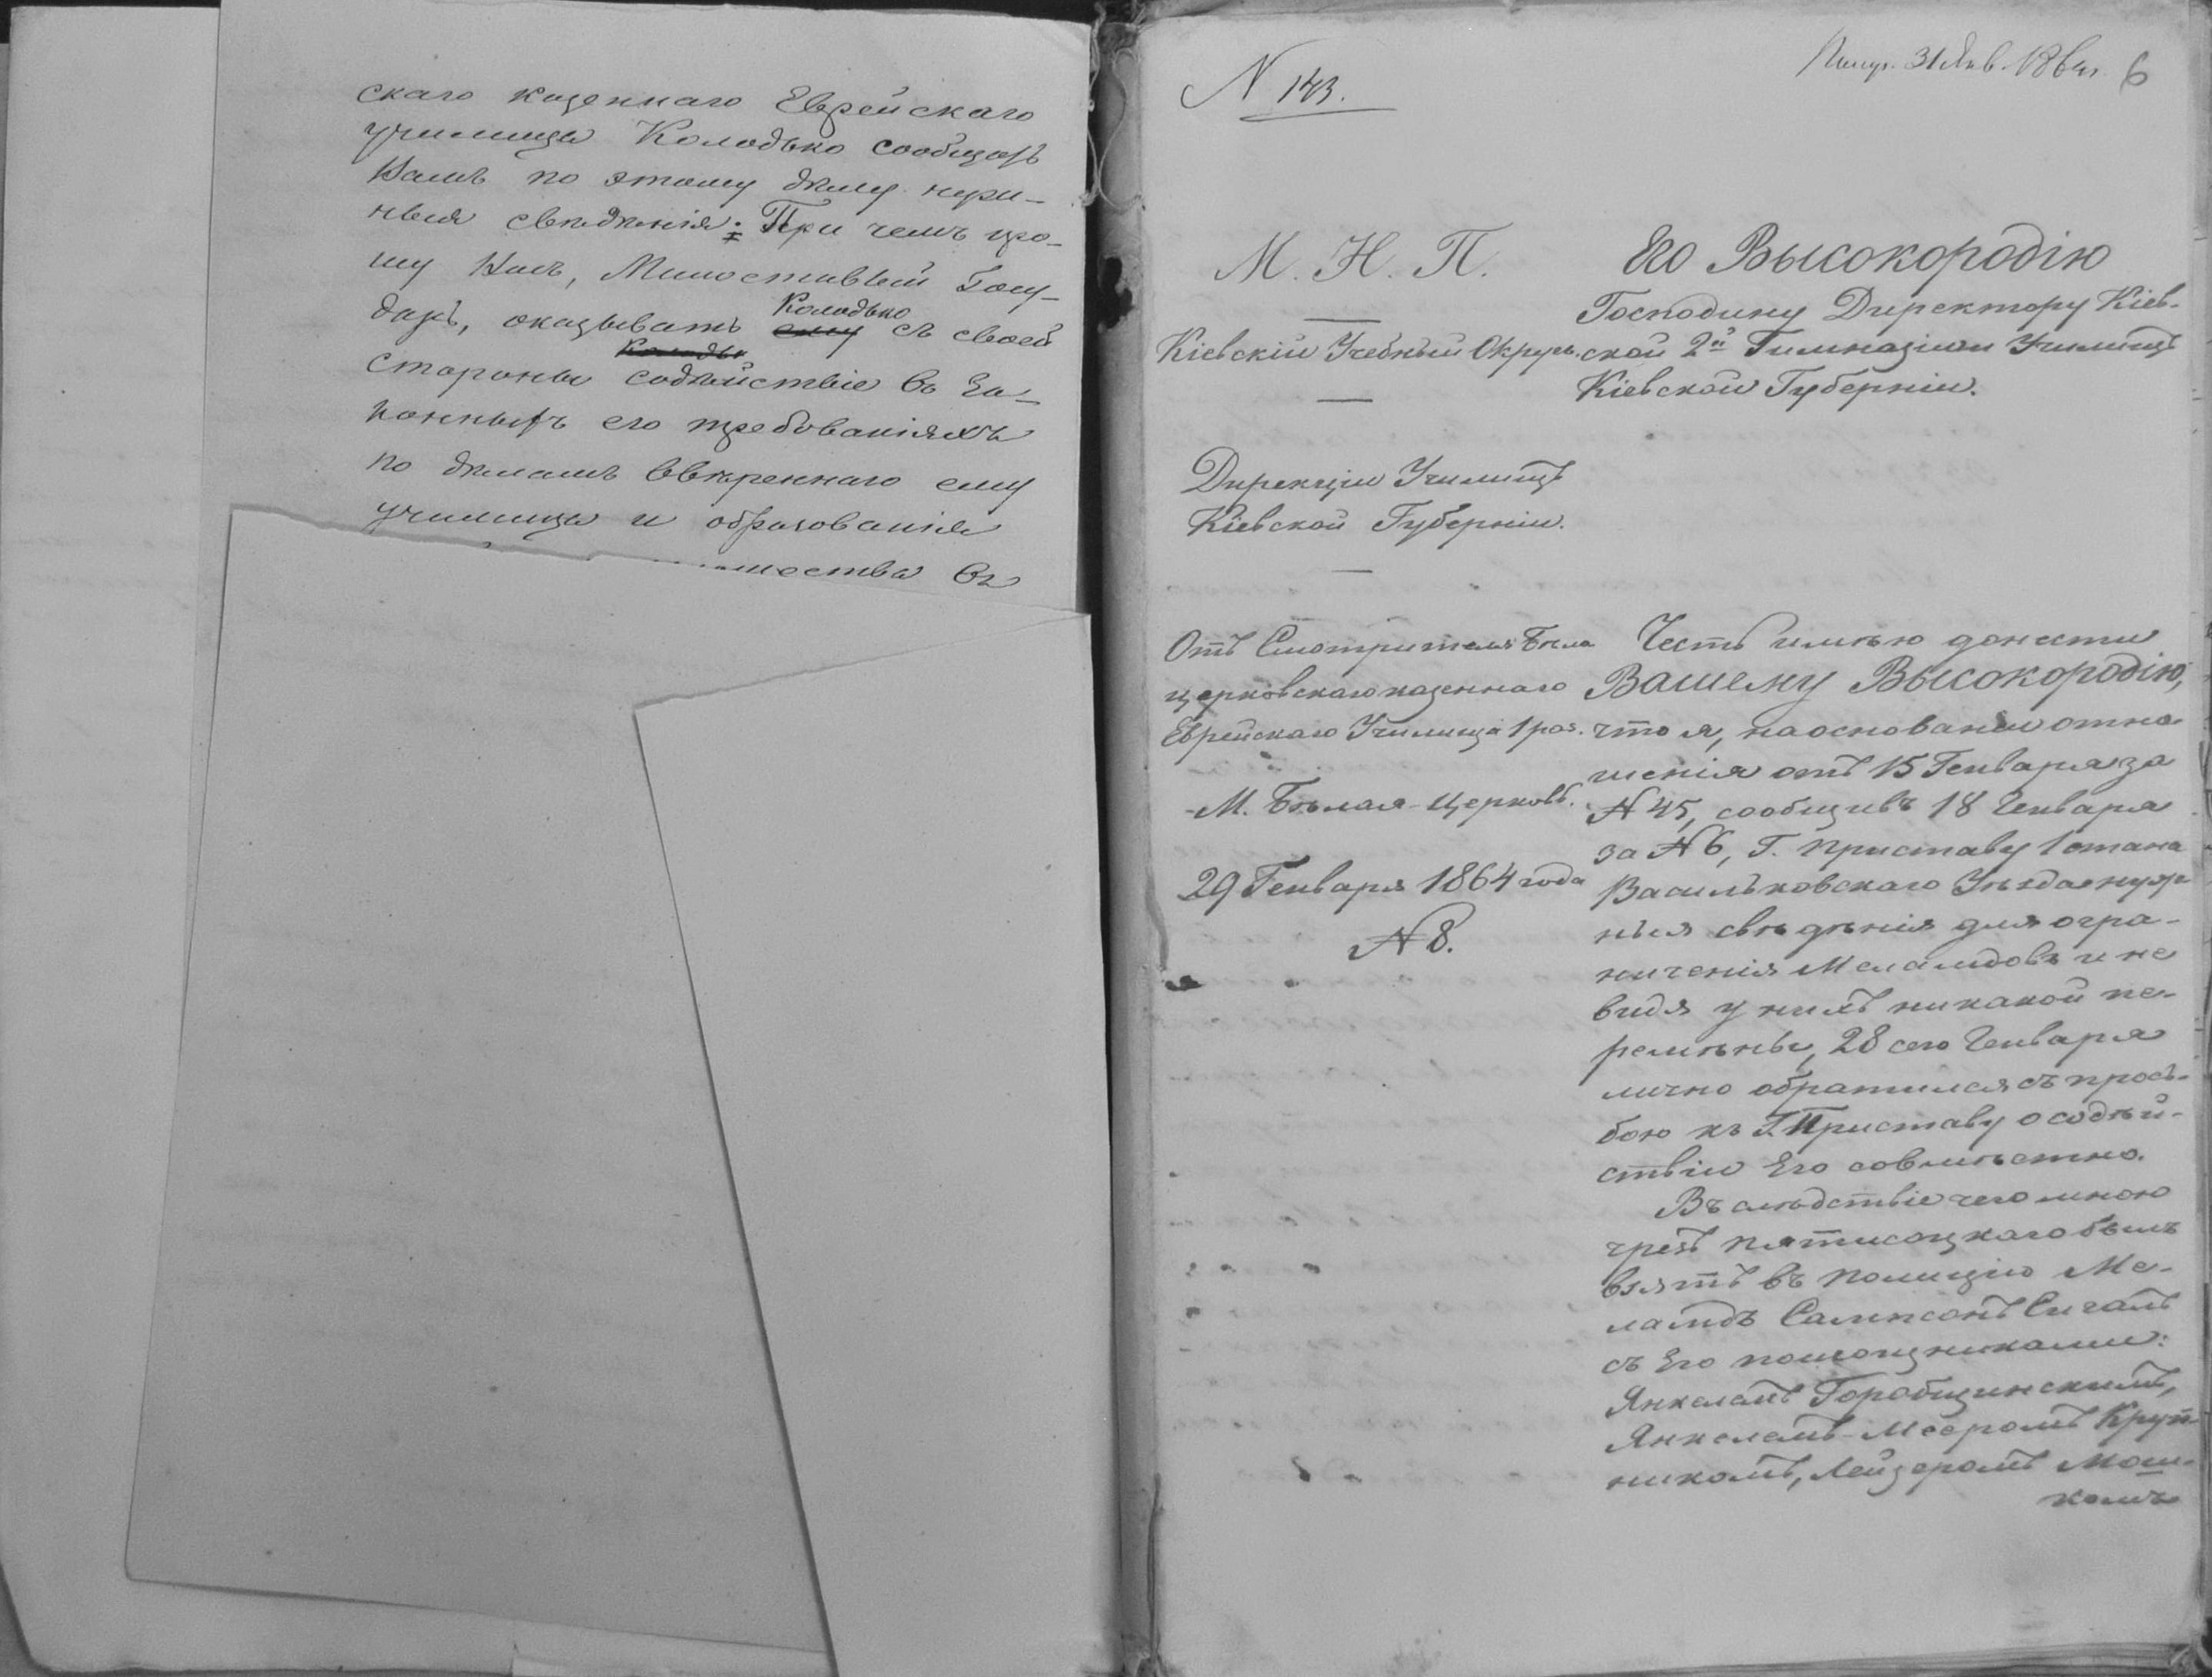 скаго казеннаго Еврейскаго
училища Колодько сообщаетъ
Вамъ по этому дѣлу нуж-
ныя свѣдѣнія. При чемъ про-
шу Васъ, Милостивый Госу-
Колодько
дарь, оказывать ему съ своей
стороны содѣйствіе въ за-
конныхъ его требованіяхъ
по дѣламъ ввѣреннаго ему
училища и образованія
въ
N 143.
Получ. 31 Янв. 1864 г. 6
М. Н. П.
Кіевскій Учебный Округъ.
Дирекціи Училищъ
Кіевской Губерніи.
Отъ Смотрителя Бѣло
церковскаго казеннаго
Еврейскаго Училища 1 раз.
М. Бѣлая-Церковь.
29 Генваря 1864 года
N 8.
Его Высокородію
Господину Директору Кіев-
ской 2й Гимназіи и Училищъ
Кіевской Губерніи.
Честь имѣю донести
Вашему Высокородію,
что я, на основаніи отно
шенія отъ 15 Генваря за
N 45, сообщивъ 18 Генваря
за N 6, Г. Приставу 1 стана
Васильковскаго Уѣзда нуж-
ныя свѣдѣнія для огра-
ниченія Меламдовъ и не
видя у нихъ никакой пе-
ремѣны, 28 сего Генваря
лично обратился съ прось-
бою къ Г. Приставу о содѣй-
ствіи Его совмѣстно.
Въ слѣдствіе чего мною
чрезъ пятисоцкаго былъ
взятъ въ полицію Ме-
ламдъ Сампсонъ Сигалъ
съ Его помощниками:
Янкелемъ Горобщинскимъ,
Янкелемъ-Мееромъ Круп-
никомъ, Лейзеромъ Мош-
комъ